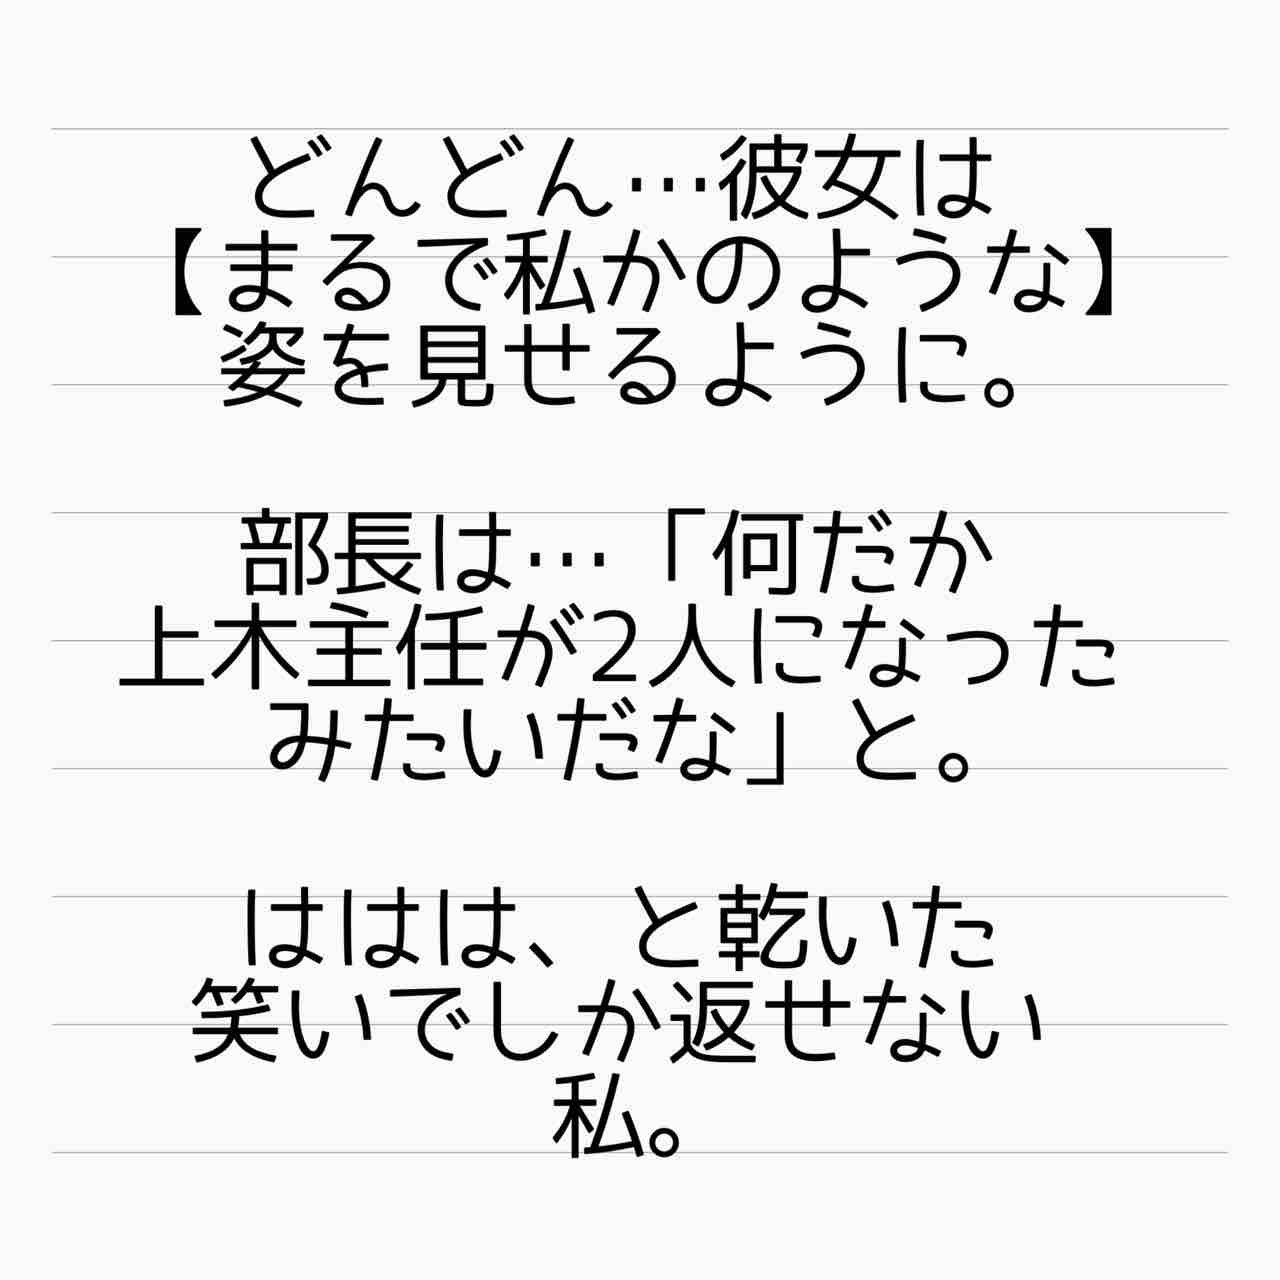 どんどん…彼女は
【まるで私かのような】
姿を見せるように。
部長は…「何だか
上木主任が2人になった
みたいだな」と。
ははは、と乾いた
笑いでしか返せない
私。